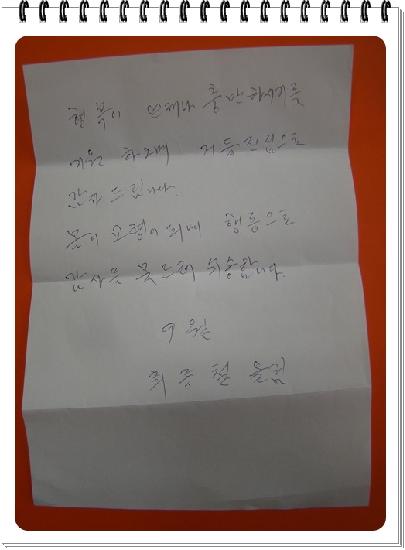 행복이 언제나 충만하시기를
기원 하오며 거듭 진심으로
감사 드립니다.
몸이 교편이 되네 행동으로
감사를 못드려 죄송합니다.
9월
최종철 올림